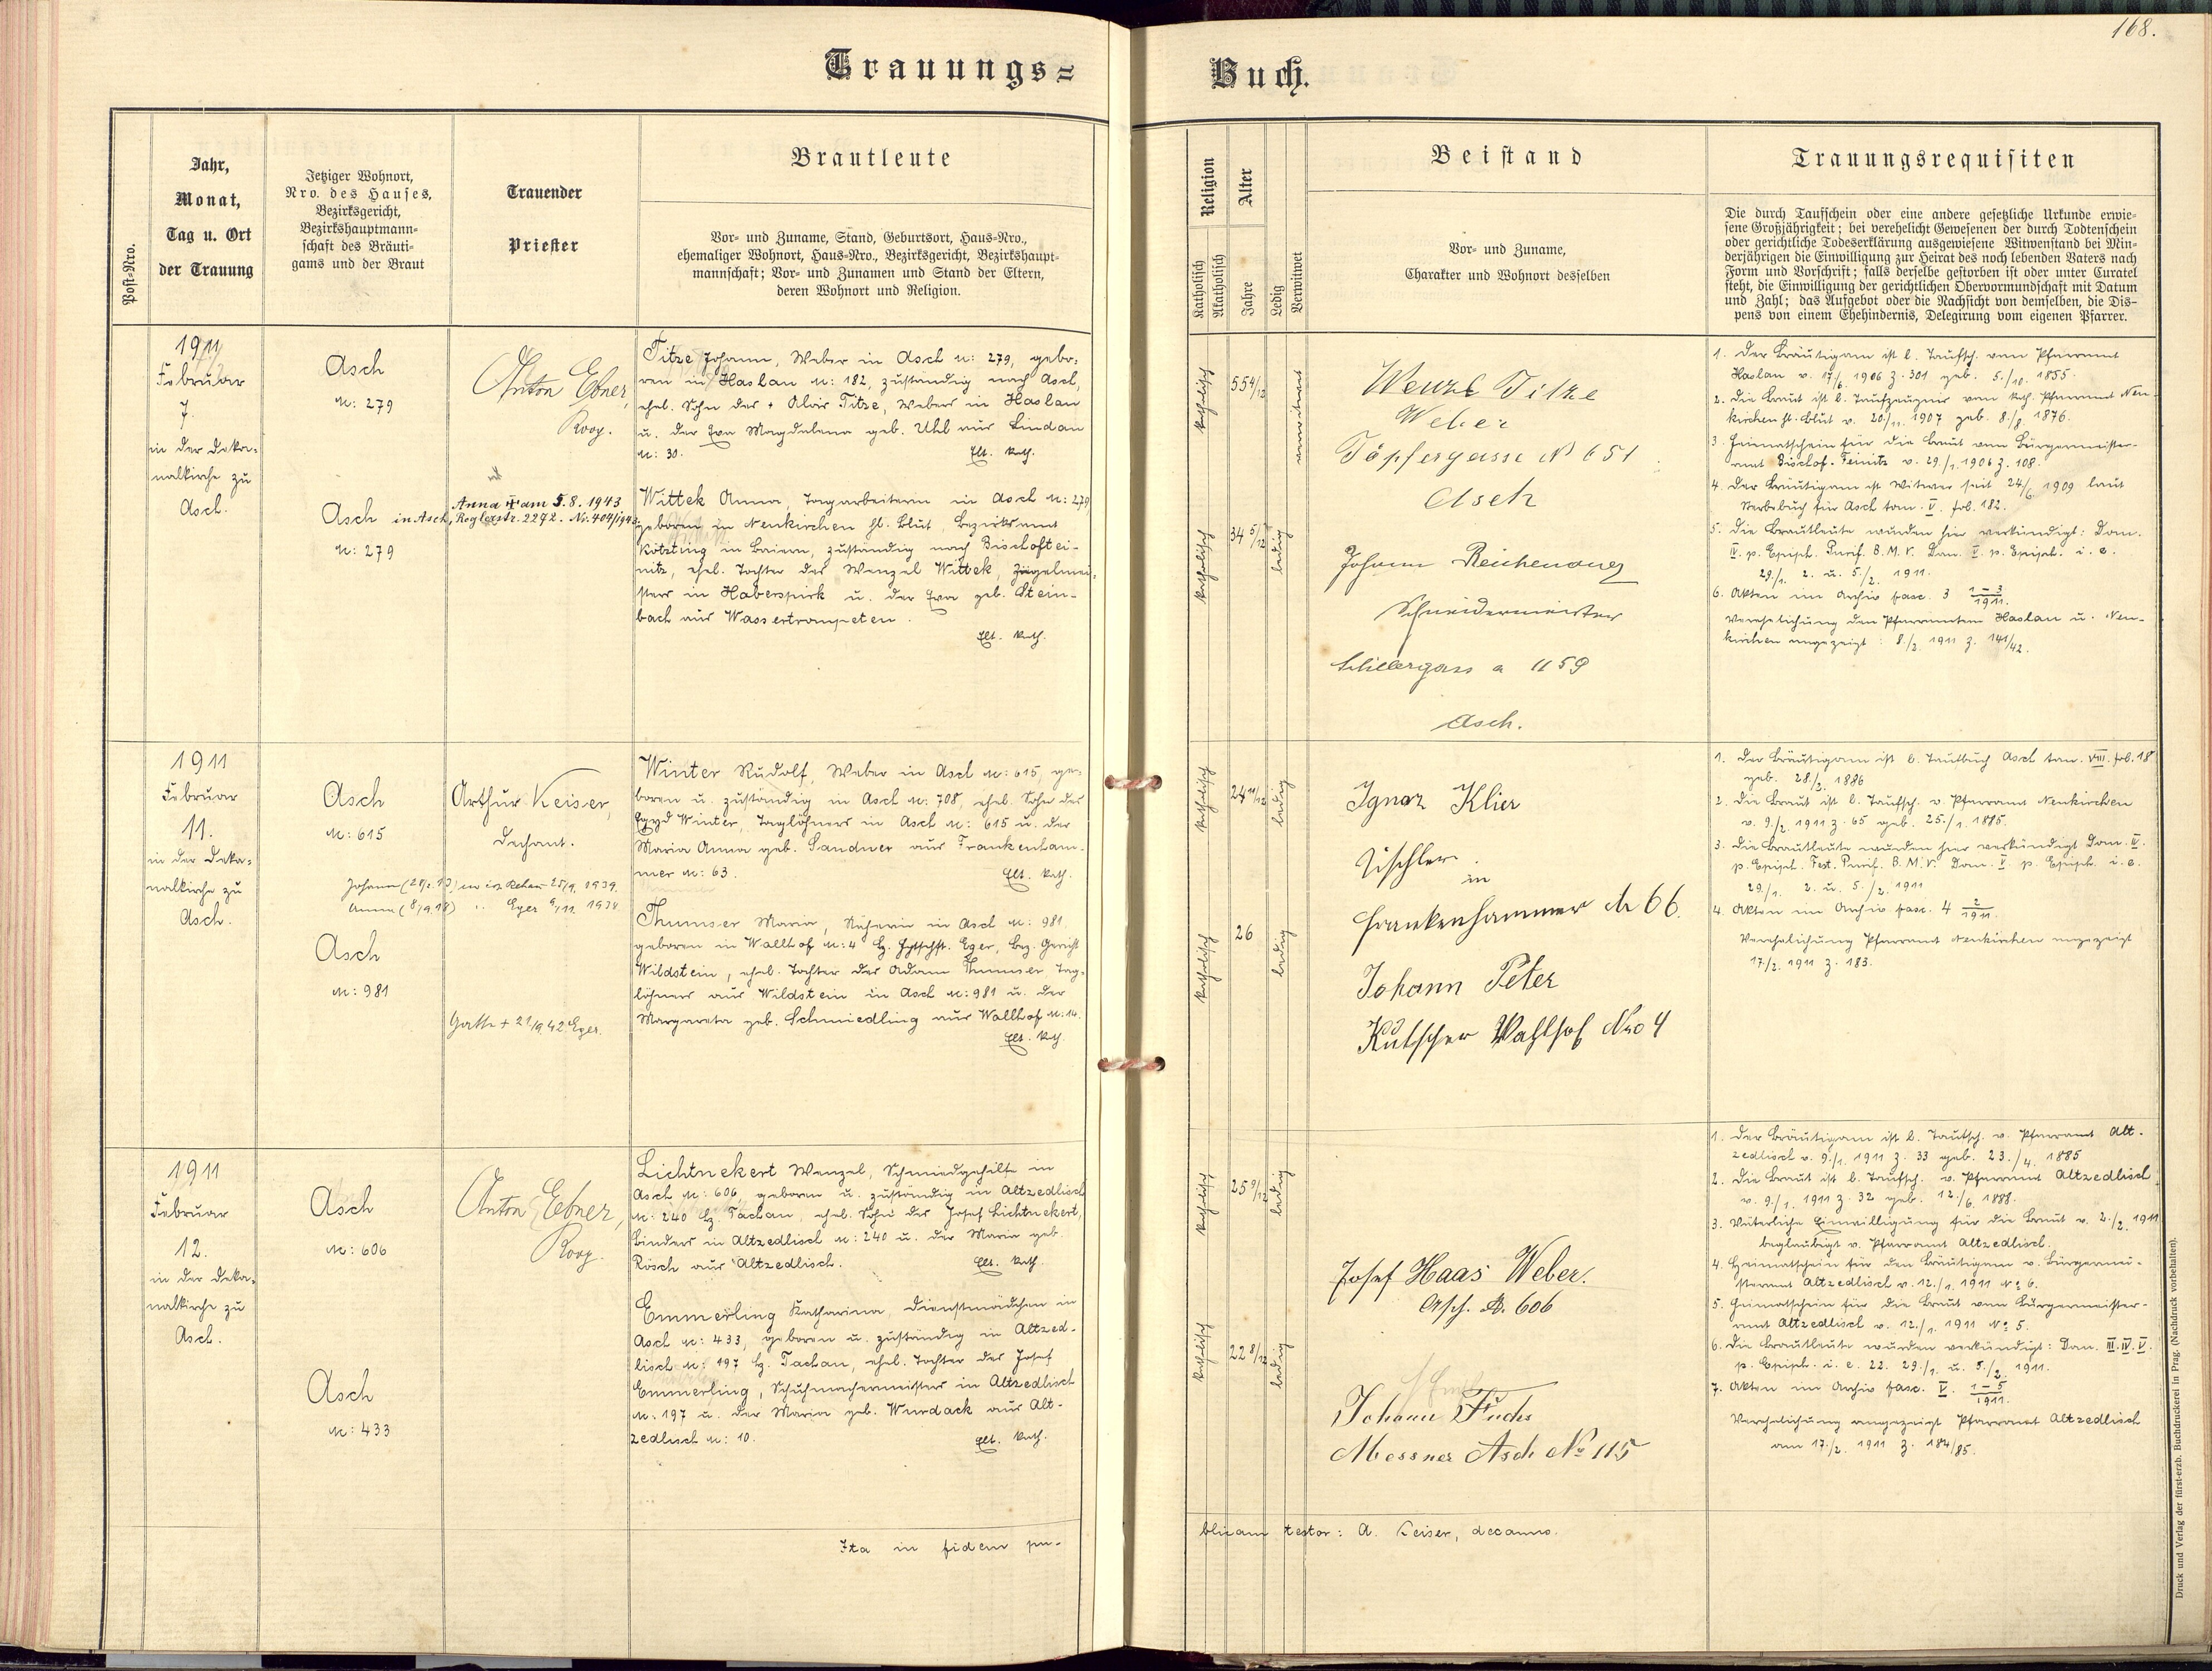 168.
Trauungs=
Buch.
Post=Nro.
Jahr,
Monat,
Tag u. Ort
der Trauung
Jetziger Wohnort,
Nro. des Hauses,
Bezirksgericht,
Bezirkshauptmann=
schaft des Bräuti=
gams und der Braut
Trauender
Priester
Brautleute
Vor= und Zuname, Stand, Geburtsort, Haus=Nro.,
ehemaliger Wohnort, Haus=Nro., Bezirksgericht, Bezirkshaupt=
mannschaft; Vor= und Zunamen und Stand der Eltern,
deren Wohnort und Religion.
Religion
Katholisch
Akatholisch
Alter
Jahre
Ledig
Verwitwet
Beistand
Vor= und Zuname,
Charakter und Wohnort desselben
Trauungsrequisiten
Die durch Taufschein oder eine andere gesetzliche Urkunde erwie=
sene Großjährigkeit; bei verehelicht Gewesenen der durch Todtenschein
oder gerichtliche Todeserklärung ausgewiesene Witwenstand bei Min=
derjährigen die Einwilligung zur Heirat des noch lebenden Vaters nach
Form und Vorschrift; falls derselbe gestorben ist oder unter Curatel
steht, die Einwilligung der gerichtlichen Obervormundschaft mit Datum
und Zahl; das Aufgebot oder die Nachsicht von demselben, die Dis=
pens von einem Ehehindernis, Delegirung vom eigenen Pfarrer.
1911
Februar
7.
in der Deka=
nalkirche zu
Asch.
Asch
N: 279
Asch
N: 279
Anton Ebner,
Koop.
Anna am 5.8.1943
in Asch, Reglerstr. 2292. Nr. 404/1943
Titze Johann, Weber in Asch N: 279, gebo=
ren in Haslau N: 182, zuständig nach Asch,
ehel. Sohn des + Alois Titze, Webers in Haslau
u. der Eva Magdalena geb. Uhl aus Lindau
N: 30. Elt. kath.
Wittek Anna, Tagarbeiterin in Asch N: 279
geboren in Neukirchen hl. Blut, Bezirksamt
Kötzting in Baiern, zuständig nach Bischoftei-
nitz, ehel. Tochter des Wenzel Wittek, Ziegelmei=
sters in Haberspirk u. der Eva geb. Stein-
bach aus Wassertrompeten.
Elt. kath.
katholisch
55 4/12
verwitwet
katholisch
34 5/12
ledig
Wenzl Titze
Weber
Töpfergasse N 651
Asch
Johann Reichenauer
Schneidermeister
Schillergasse 1159
Asch.
1. Der Bräutigam ist l. Taufsch. vom Pfarramt
Haslau v. 17/6. 1906 Z. 301 geb. 5./10. 1855.
2. Die Braut ist l. Taufzeugnis vom kath. Pfarramt Neu-
kirchen hl. Blut v. 20/11. 1907 geb. 8./8. 1876.
3. Heimatschein für die Braut vom Bürgermeister-
amt Bischof-Teinitz v. 29./1. 1906 Z. 108.
4. Der Bräutigam ist Witwer seit 24/6 1909 laut
Sterbebuch für Asch tom. V. fol. 182.
5. Die Brautleute wurden hier verkündigt: Dom.
IV. p. Epiph. Purif. B. M. V. Dom. V p. Epiph. i. e.
29./1. 2. u. 5./2. 1911.
6. Akten im Archiv fasc. 3 1-3/1911.
Verehelichung den Pfarrämtern Haslau u. Neu-
kirchen angezeigt: 8./2. 1911 Z. 141/42.
1911
Februar
11.
in der Deka=
nalkirche zu
Asch.
Asch
N: 615
Asch
N: 981
Arthur Keiser,
Dechant.
Eger 1934
Gatte + 21/9 42 Eger.
Winter Rudolf, Weber in Asch N: 615, ge=
boren u. zuständig in Asch N: 708, ehel. Sohn des
Egyd Winter, Taglöhners in Asch N: 615 u. der
Maria Anna geb. Sandner aus Frankenham-
mer N: 63. Elt. kath.
Thumser Maria, Näherin in Asch N: 981
geboren in Wallhof N: 4 Bz. Hptschft. Eger, Bez. Gericht
Wildstein, ehel. Tochter des Adam Thumser, Tag=
löhners aus Wildstein in Asch N: 981 u. der
Margareta geb. Schmiedling aus Wallhof N: 14.
Elt. kath.
katholisch
24 11/12
ledig
katholisch
26
ledig
Ignaz Klier
Tischler
in
Frankenhammer N 66.
Johann Peter
Kutscher Wahlhof Nro 4
1. Der Bräutigam ist l. Taufbuch Asch tom. VIII. fol. 18
geb. 28./2. 1886
2. Die Braut ist l. Taufsch. v. Pfarramt Neukirchen
v. 9./2. 1911 Z. 65 geb. 25./1. 1885.
3. Die Brautleute wurden hier verkündigt Dom. IV.
p. Epiph. Fest. Purif. B. M. V. Dom. V p. Epiph. i. e.
29./1. 2. u. 5./2. 1911
4. Akten im Archiv fasc. 4 2/1911.
Verehelichung Pfarramt Neukirchen angezeigt
17/2. 1911 Z. 183.
1911
Februar
12.
in der Deka=
nalkirche zu
Asch.
Asch
N: 606
Asch
N: 433
Anton Ebner,
Koop.
Lichtnekert Wenzel, Schmiedgehilfe in
Asch N: 606, geboren u. zuständig in Altzedlisch
N: 240 Bz. Tachau, ehel. Sohn des Josef Lichtnekert,
Binders in Altzedlisch N: 240 u. der Maria geb.
Rösch aus Altzedlisch. Elt. kath.
Emmerling Katharina, Dienstmädchen in
Asch N: 433, geboren u. zuständig in Altzed-
lisch N: 197 Bz. Tachau, ehel. Tochter des Josef
Emmerling, Schuhmachermeisters in Altzedlisch
N: 197 u. der Maria geb. Wurdack aus Alt-
zedlisch N: 10. Elt. kath.
katholisch
25 9/12
ledig
katholisch
22 8/12
ledig
Josef Haas Weber.
Asch. N. 606
Johann Fuchs
Messner Asch No 115
1. Der Bräutigam ist l. Taufsch. v. Pfarramt Alt-
zedlisch v. 9./1. 1911 Z. 33 geb. 23./4. 1885
2. Die Braut ist l. Taufsch. v. Pfarramt Altzedlisch
v. 9./1. 1911 Z. 32 geb. 12./6. 1888.
3. Väterliche Einwilligung für die Braut v. 2./2. 1911
beglaubigt v. Pfarramt Altzedlisch.
4. Heimatschein für den Bräutigam v. Bürgermei-
steramt Altzedlisch v. 12./1. 1911 No 6.
5. Heimatschein für die Braut vom Bürgermeister-
amt Altzedlisch v. 12./1. 1911 No 5.
6. Die Brautleute wurden verkündigt: Dom. III. IV. V.
p. Epiph. i. e. 22. 29./1. u. 5./2. 1911.
7. Akten im Archiv fasc. V. 1-5/1911.
Verehelichung angezeigt Pfarramt Altzedlisch
am 17./2. 1911 Z. 184/85.
Ita in fidem pu-
blicam testor: A. Keiser, decanus.
Druck und Verlag der fürst-erzb. Buchdruckerei in Prag. (Nachdruck vorbehalten).